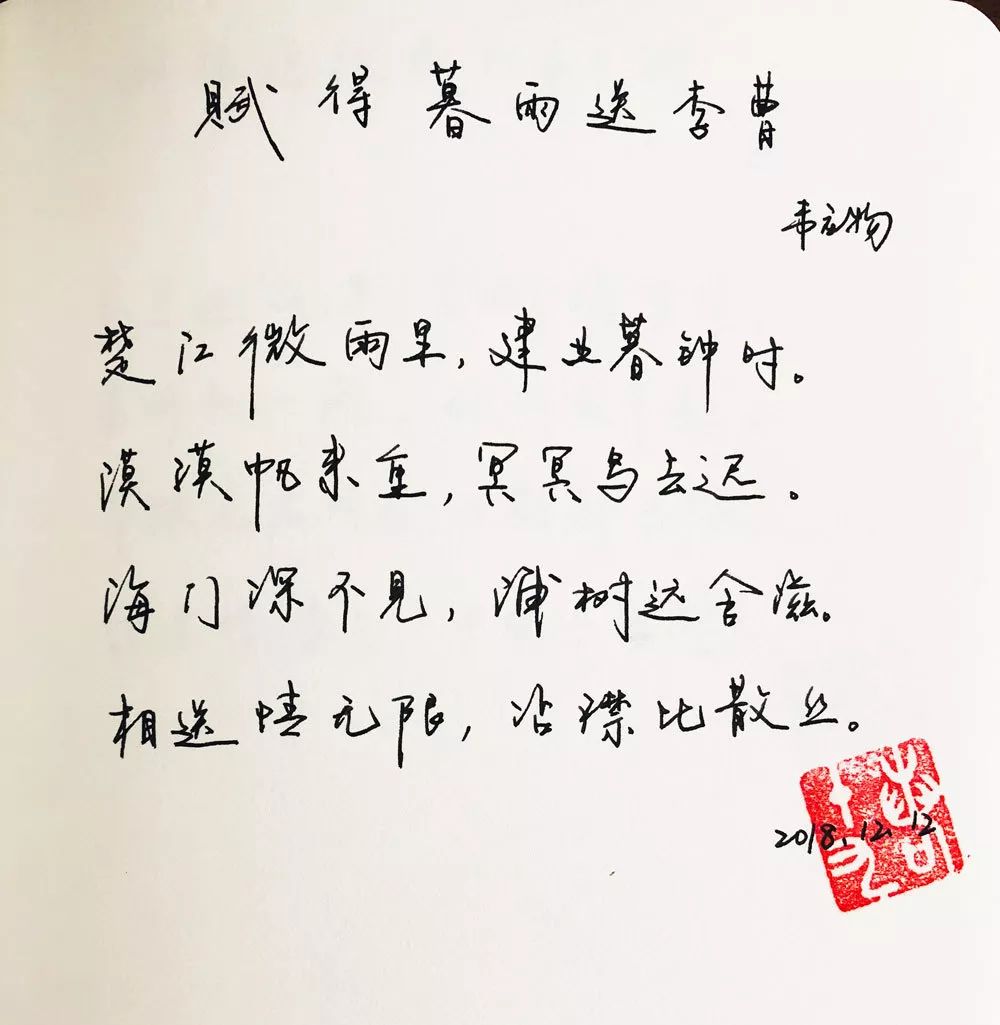 賦得暮雨送李曹
韦应物
楚江微雨里，建业暮钟时。
漠漠帆来重，冥冥鸟去迟。
海门深不見，浦树远含滋。
相送情无限，沾襟比散丝。
2018.12.12